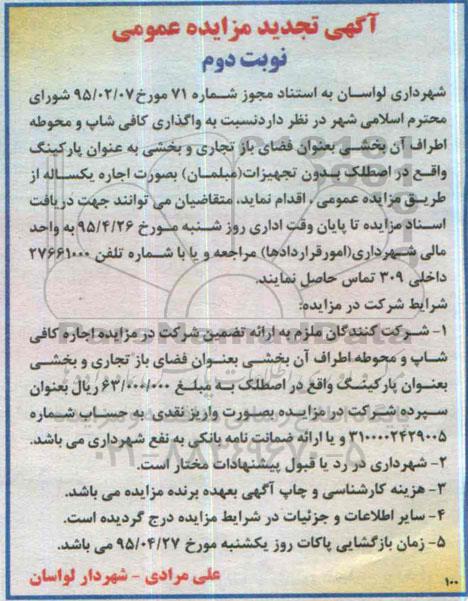 آگهی تجدید مزایده عمومی
نوبت دوم
شهرداری لواسان به استناد مجوز شماره ۷۱ مورخ ۹۵/۰۲/۰۷ شورای
محترم اسلامی شهر در نظر داردنسبت به واگذاری کافی شاپ و محوطه
اطراف آن بخشی بعنوان فضای باز تجاری و بخشی به عنوان پارکینگ
واقع در اصطلک بدون تجهیزات(مبلمان) بصورت اجاره یکساله از
طریق مزایده عمومی ، اقدام نماید، متقاضیان می توانند جهت دریافت
اسناد مزایده تا پایان وقت اداری روز شنبه مورخ ۹۵/۴/۲۶ به واحد
مالی شهرداری(امورقراردادها) مراجعه و یا با شماره تلفن ۲۷۶۶۱۰۰۰
داخلی ۳۰۹ تماس حاصل نمایند.
شرایط شرکت در مزایده:
۱- شرکت کنندگان ملزم به ارائه تضمین شرکت در مزایده اجاره کافی
شاپ و محوطه اطراف آن بخشی بعنوان فضای باز تجاری و بخشی
بعنوان پارکینگ واقع در اصطلک به مبلغ ۶۳/۰۰۰/۰۰۰ ریال بعنوان
سپرده شرکت در مزایده بصورت واریز نقدی به حساب شماره
۳۱۰۰۰۰۲۴۲۹۰۰۵ و یا ارائه ضمانت نامه بانکی به نفع شهرداری می باشد.
۲- شهرداری در رد یا قبول پیشنهادات مختار است.
۳- هزینه کارشناسی و چاپ آگهی بعهده برنده مزایده می باشد.
۴- سایر اطلاعات و جزئیات در شرایط مزایده درج گردیده است.
۵- زمان بازگشایی پاکات روز یکشنبه مورخ ۹۵/۰۴/۲۷ می باشد.
علی مرادی - شهردار لواسان
۱۰۰
۰۲۱-۸۸۳۴۹۶۷۰-۵